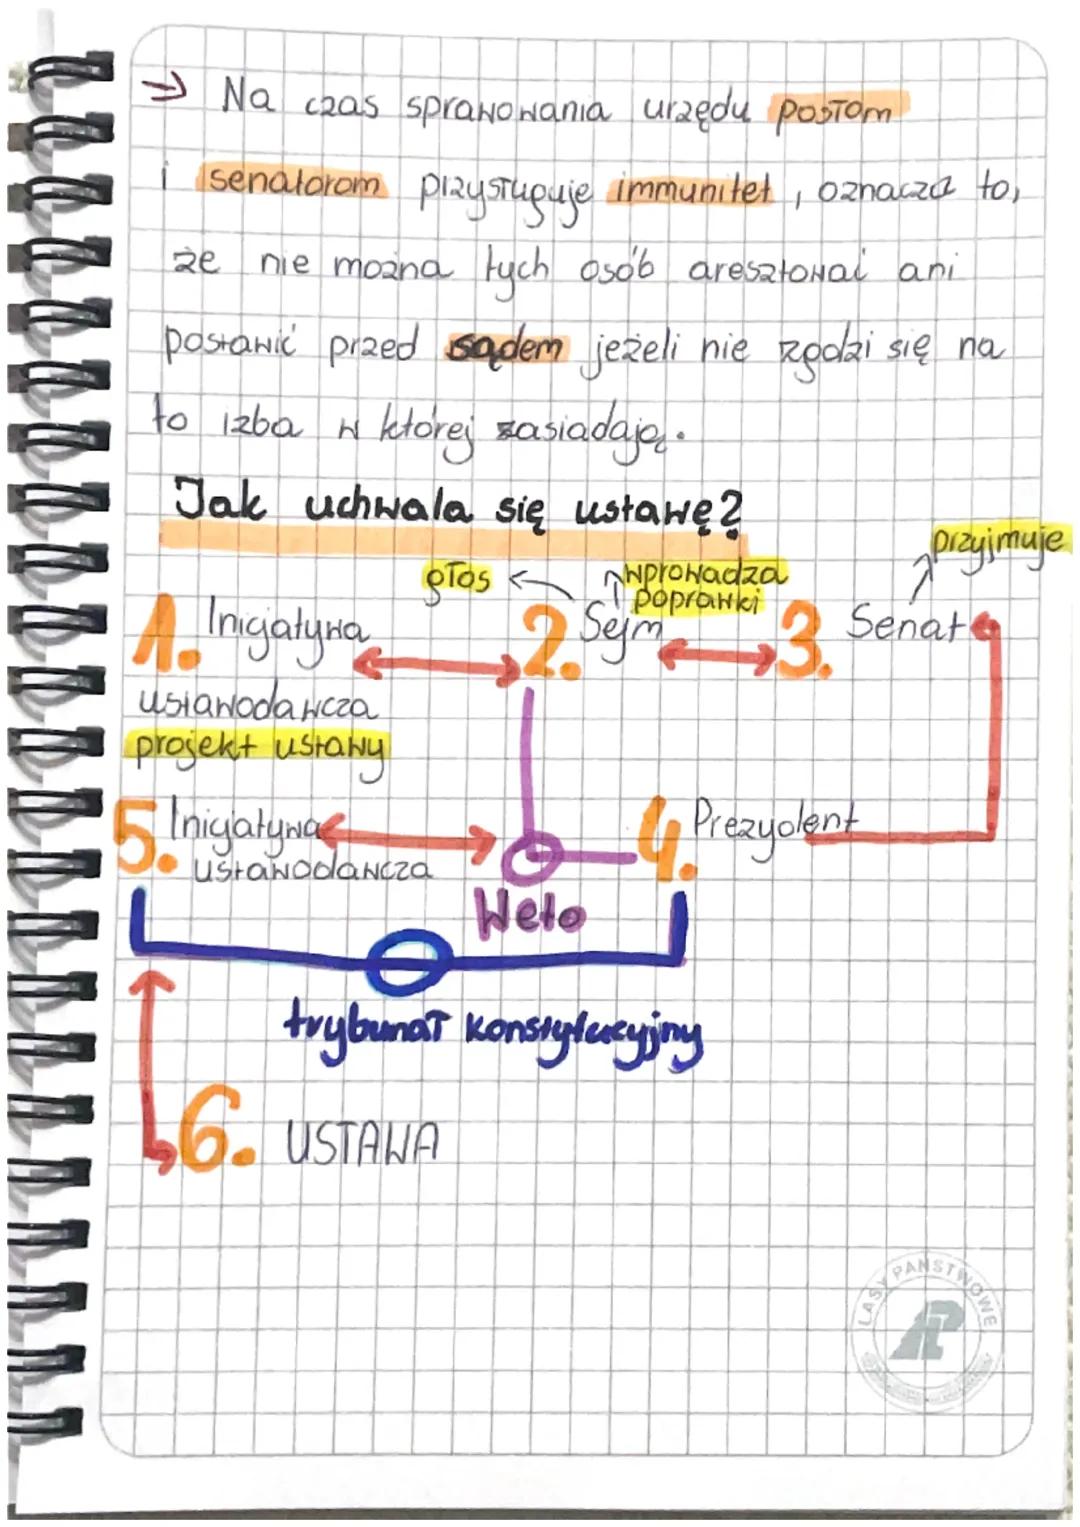 → Na czas sprawowania urzędu posłom
i senatorom przysługuje immunitet, oznacza to,
że nie można tych osób aresztować ani
postawić przed sądem jeżeli nie zgodzi się na
to izba w której zasiadają.
Jak uchwala się ustawę?
głos
wprowadza
poprawki
przyjmuje
1. Inicjatywa
ustawodawcza
projekt ustawy
2. Sejm
3. Senat
5. Inicjatywa
ustawodawcza
4. Prezydent
Weto
trybunał konstytucyjny
6. USTAWA
LASY PAŃSTWOWE